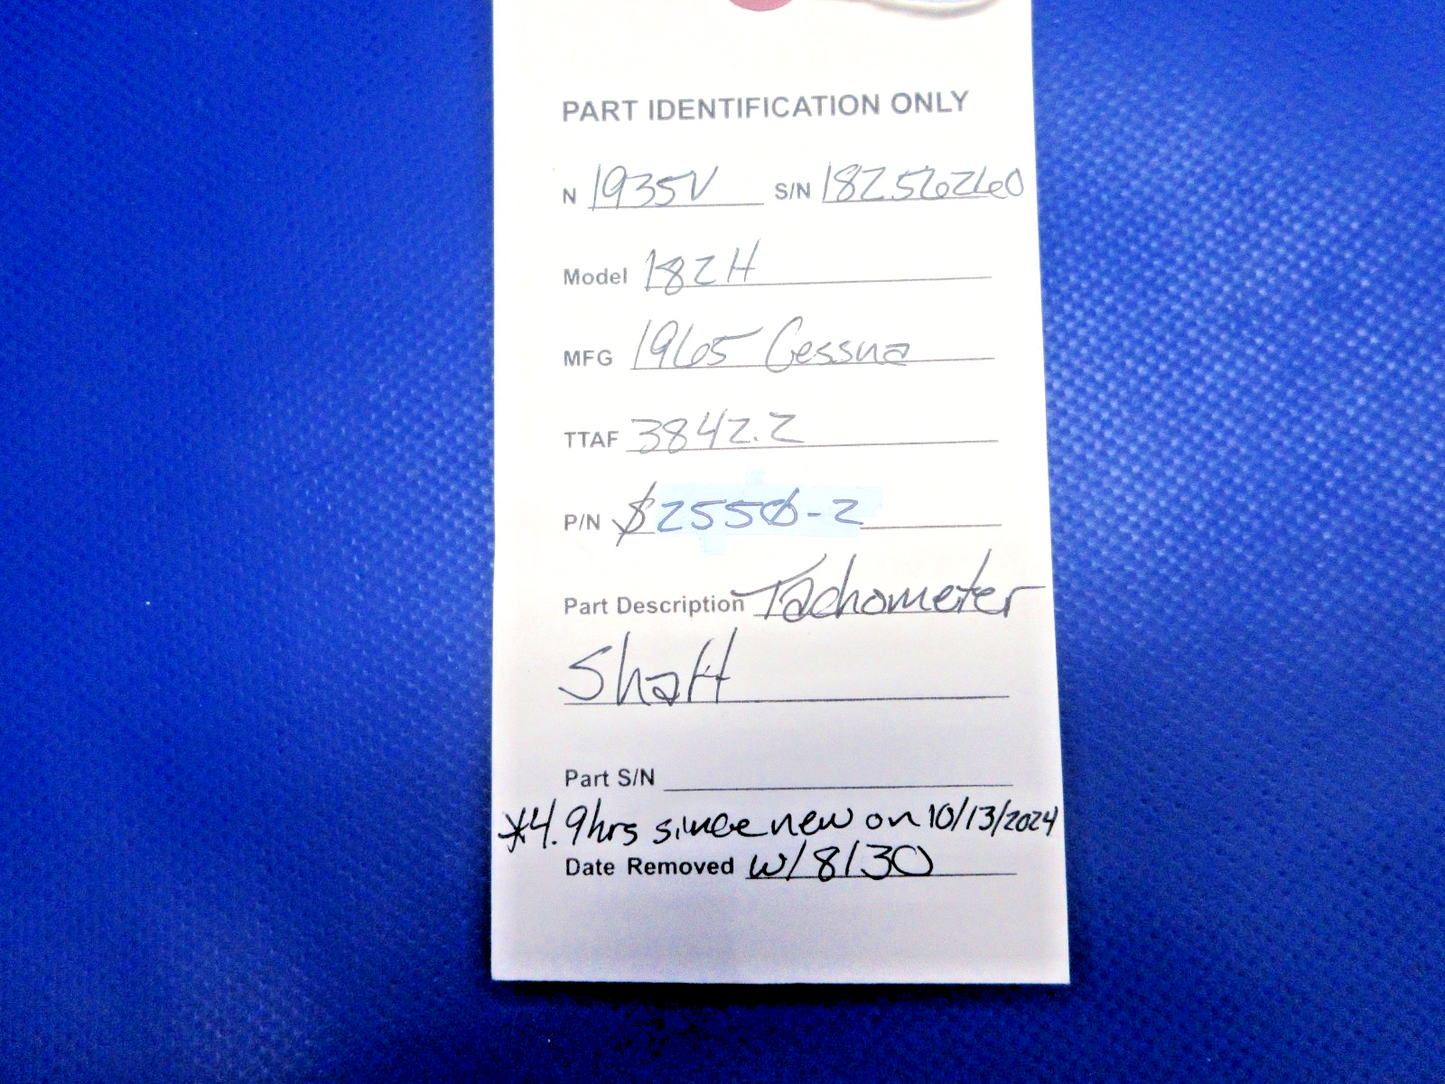 PART IDENTIFICATION ONLY
N 1935V S/N 18256260
Model 182H
MFG 1965 Cessna
TTAF 3842.2
P/N $2550-2
Part Description Tachometer
Shaft
Part S/N
*4.9hrs since new on 10/13/2024
Date Removed w/8130